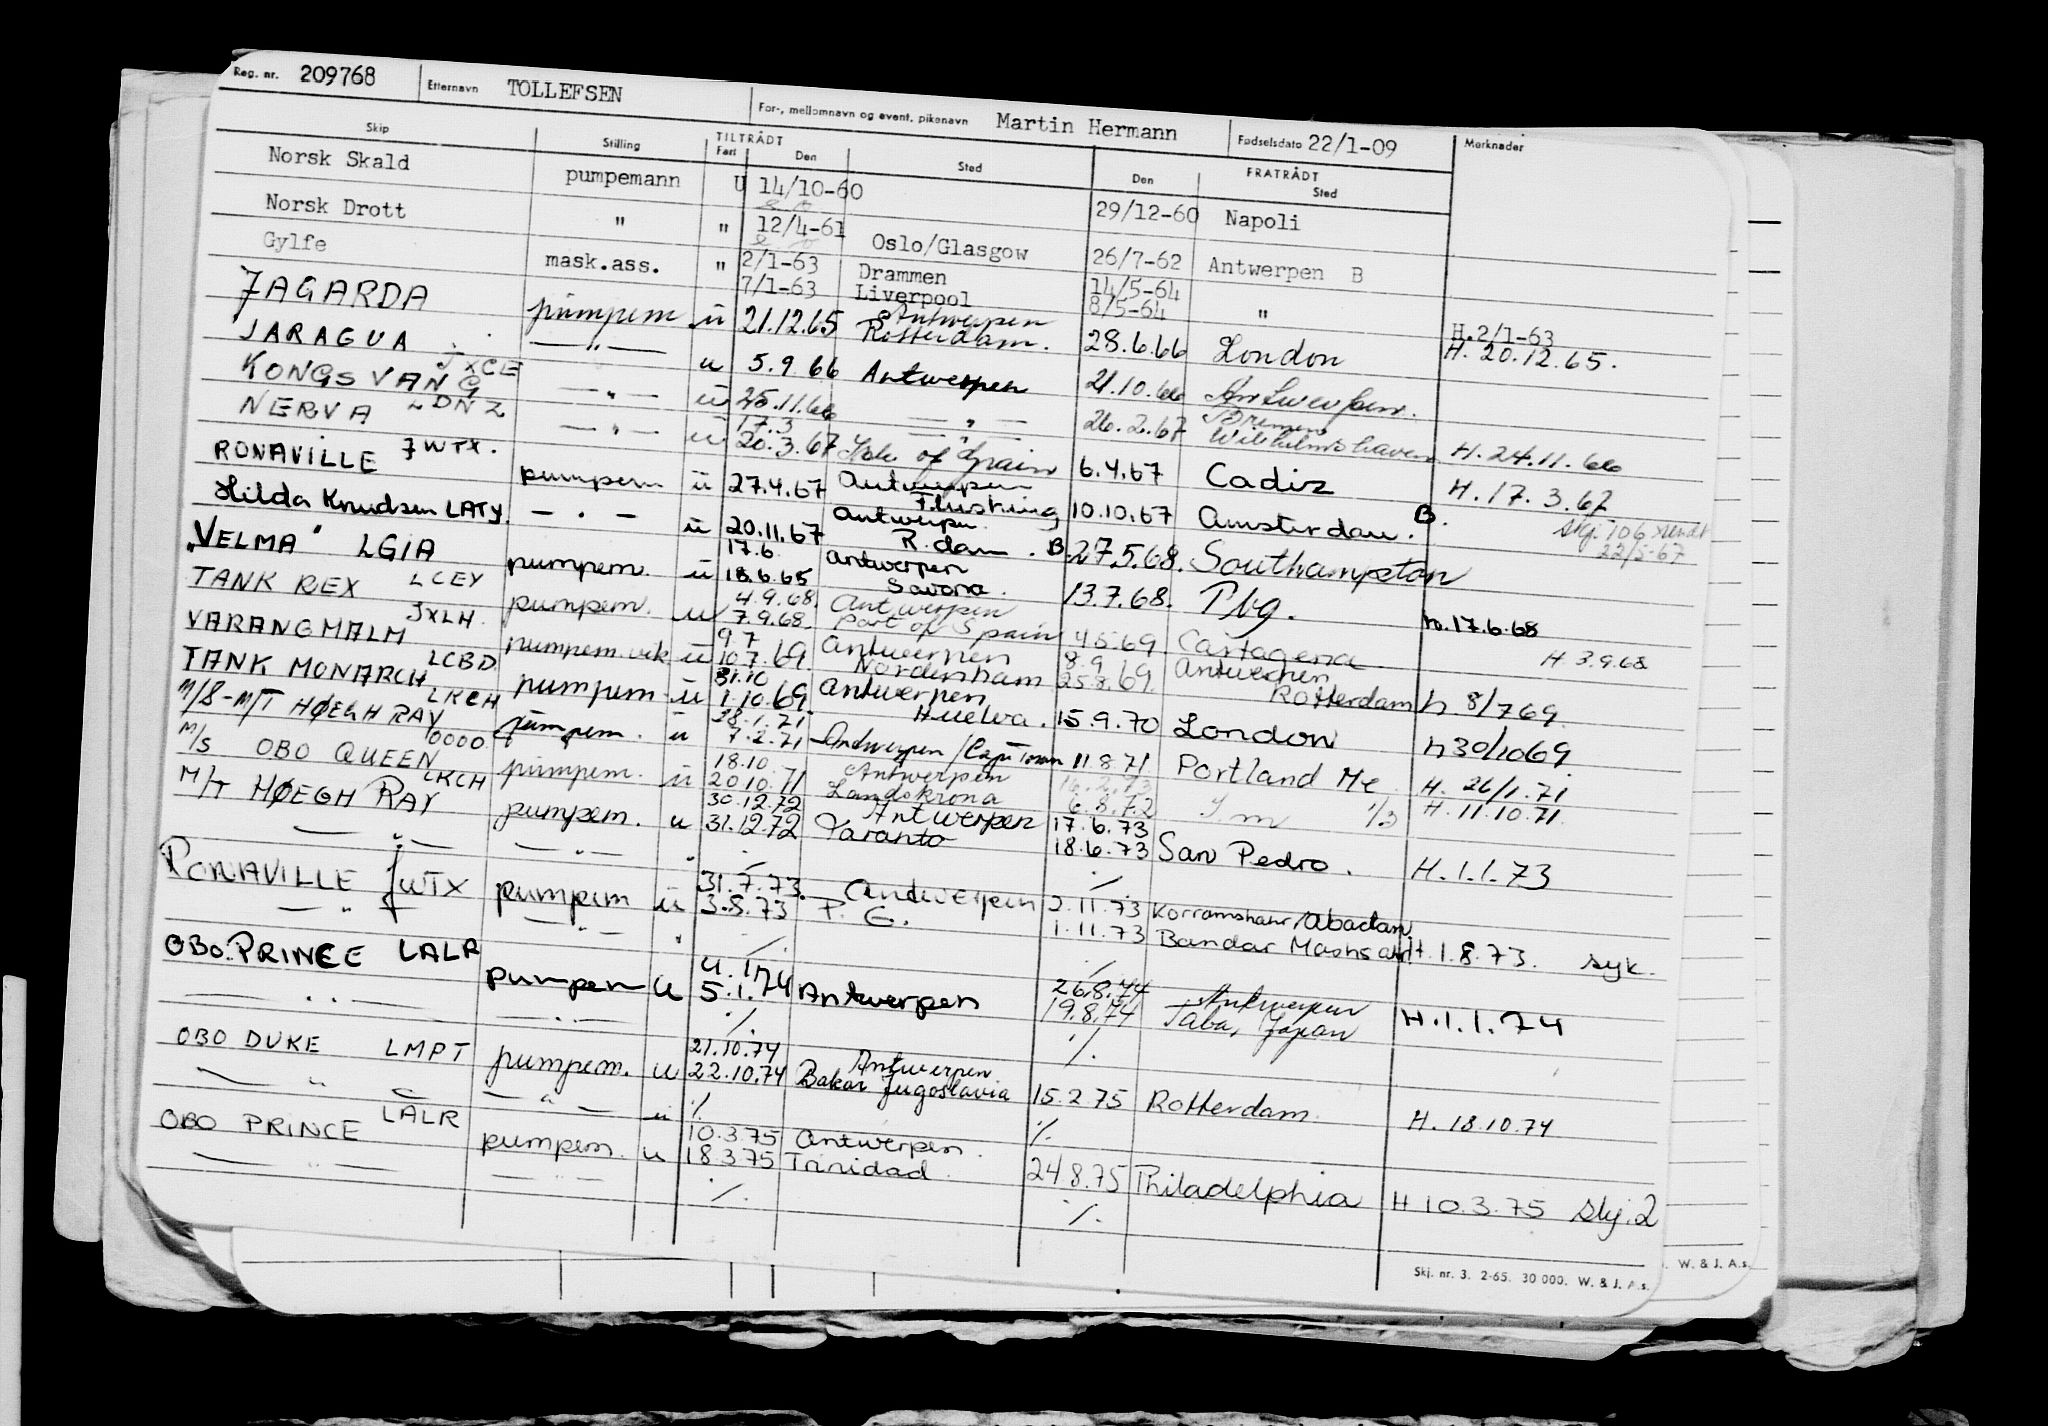 Reg. nr. 209768 Etternavn TOLLEFSEN For-, mellomnavn og event. pikenavn Martin Hermann Fødselsdato 22/1-09 Merknader
Skip Stilling TILTRÅDT FRATRÅDT
Fart Den Sted Den Sted
Norsk Skald pumpemann U 14/10-60 29/12-60 Napoli
Norsk Drott " " 12/4-61 Oslo/Glasgow 26/7-62 Antwerpen B
Gylfe mask.ass. " 2/1-63 Drammen 14/5-64
7/1-63 Liverpool 8/5-64 " H.2/1-63
JAGARDA pumpem ü 21.12.65 Antwerpen
Rotterdam. 28.6.66 London H. 20.12.65.
JARAGUA JXCE — " — u 5.9 66 Antwerpen 21.10.66 Antwerpen.
KONGSVANG LDNZ — " — ü 25.11.66 — " — 26.2.67 Bremen
Wilhelmshaven H. 24.11.66
NERVA JWTX. — " — ü 17.3
20.3.67 of Spain 6.4.67 Cadiz H. 17. 3. 67
RONAVILLE pumpem ü 27.4.67 Antwerpen
Flushing 10.10.67 Amsterdam. B. Skj. 106 sendt
22/5-67
Hilda Knudsen LATY. — " — ü 20.11.67 Antwerpen.
R.dam. B. 27.5.68. Southampton
"VELMA" LGIA pumpem. ü 17.6
18.6.68 Antwerpen
Savona. 13.7.68. Pbg. h.17.6.68
TANK REX LCEY pumpem. u 4.9.68.
7.9.68. Antwerpen
Port of Spain 4.5.69 Cartagena H. 3.9.68
VARANGMALM JXLH. pumpem.vik ü 9.7
10.7.69 Antwerpen
Nordenham 8.9
25.8.69. Antwerpen
Rotterdam h 8/7 69.
TANK MONARCH LCBD pumpem. ü 31.10
1.10.69 Antwerpen
Huelva. 15.9.70 London h 30/10 69
M/S-M/T HØEGH RAY LKCH pumpem. ü 28.1.71
7.2.71 Antwerpen/Cape Town 11.8.71 Portland Me H. 26/1.71
M/S OBO QUEEN OOOO pumpem. ü 18.10
20.10.71 Antwerpen
Landskrona 6.8.72 1/3 H. 11.10.71.
M/T HØEGH RAY LKCH pumpem. u 30.12.72
31.12.72 Antwerpen
Taranto 17.6.73
18.6.73 San Pedro. H. 1.1.73
— " — — " — " ./. ./.
RONAVILLE JWTX pumpem ü 31.7.73.
3.8.73 Antwerpen
P. G. 2.11.73 Korramshahr/Abadan
1.11.73 Bandar Mashsahr H. 1.8.73. syk.
— " — — " — " ./. ./.
OBO PRINCE LALR pumpem u 4.1.74
5.1.74 Antwerpen 26.8.74
19.8.74 Antwerpen
Japan H. 1.1.74
— " — — " — ./. ./.
OBO DUKE LMPT pumpem. u 21.10.74
22.10.74 Antwerpen
Bakar Jugoslavia 15.2.75 Rotterdam. H. 18.10.74
— " — — " — ü ./. ./.
OBO PRINCE LALR pumpem. u 10.3.75 Antwerpen.
18.3.75 Trinidad. 24.8.75 Philadelphia H 10.3.75 Skj.2
— " — — " — ./. ./.
Skj. nr. 3. 2-65. 30 000. W. & J. A.s.
W. & J. A.s.